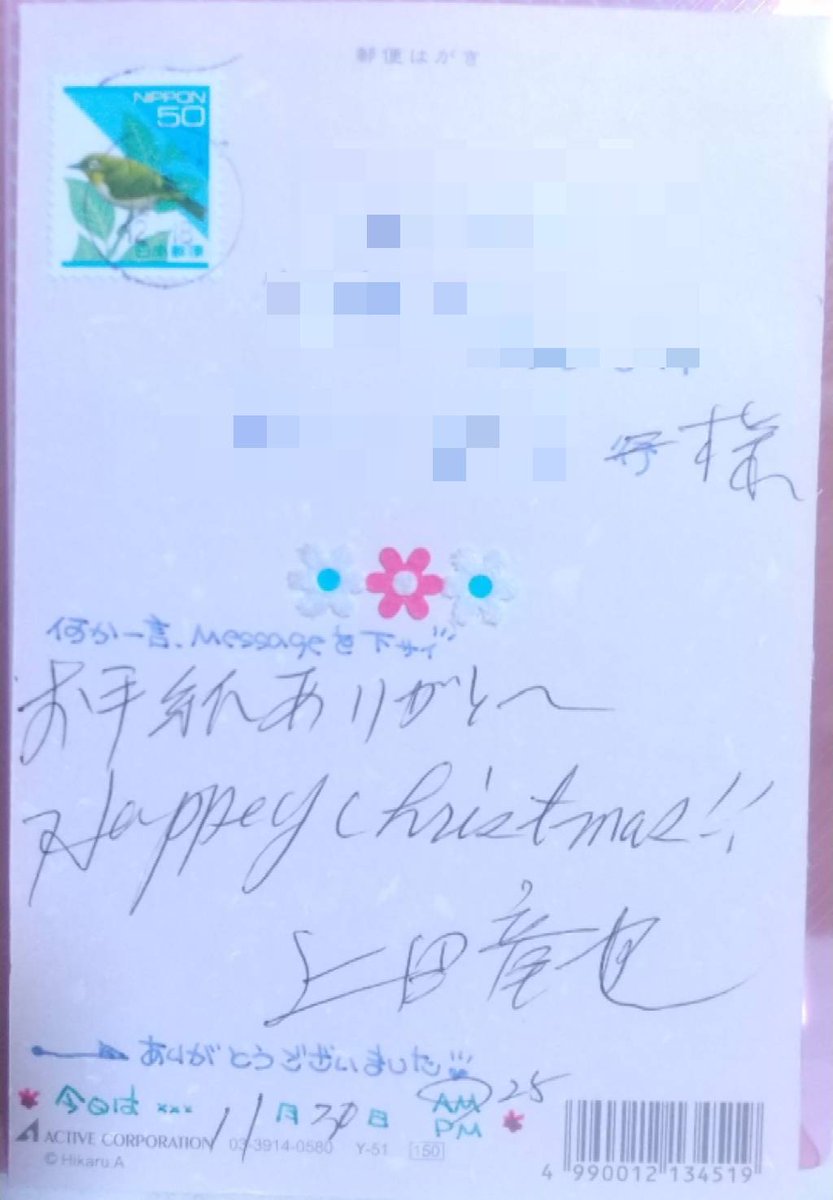 郵便はがき
NIPPON
50
日本郵便
様
何か一言、Messageを下サイ
お手紙ありがと〜
Happey christmas!!
上田竜也
ありがとうございました
今日は xxx 11月30日 AM 25
PM
ACTIVE CORPORATION 03-3914-0580 Y-51 150
© Hikaru.A
4 990012 134519